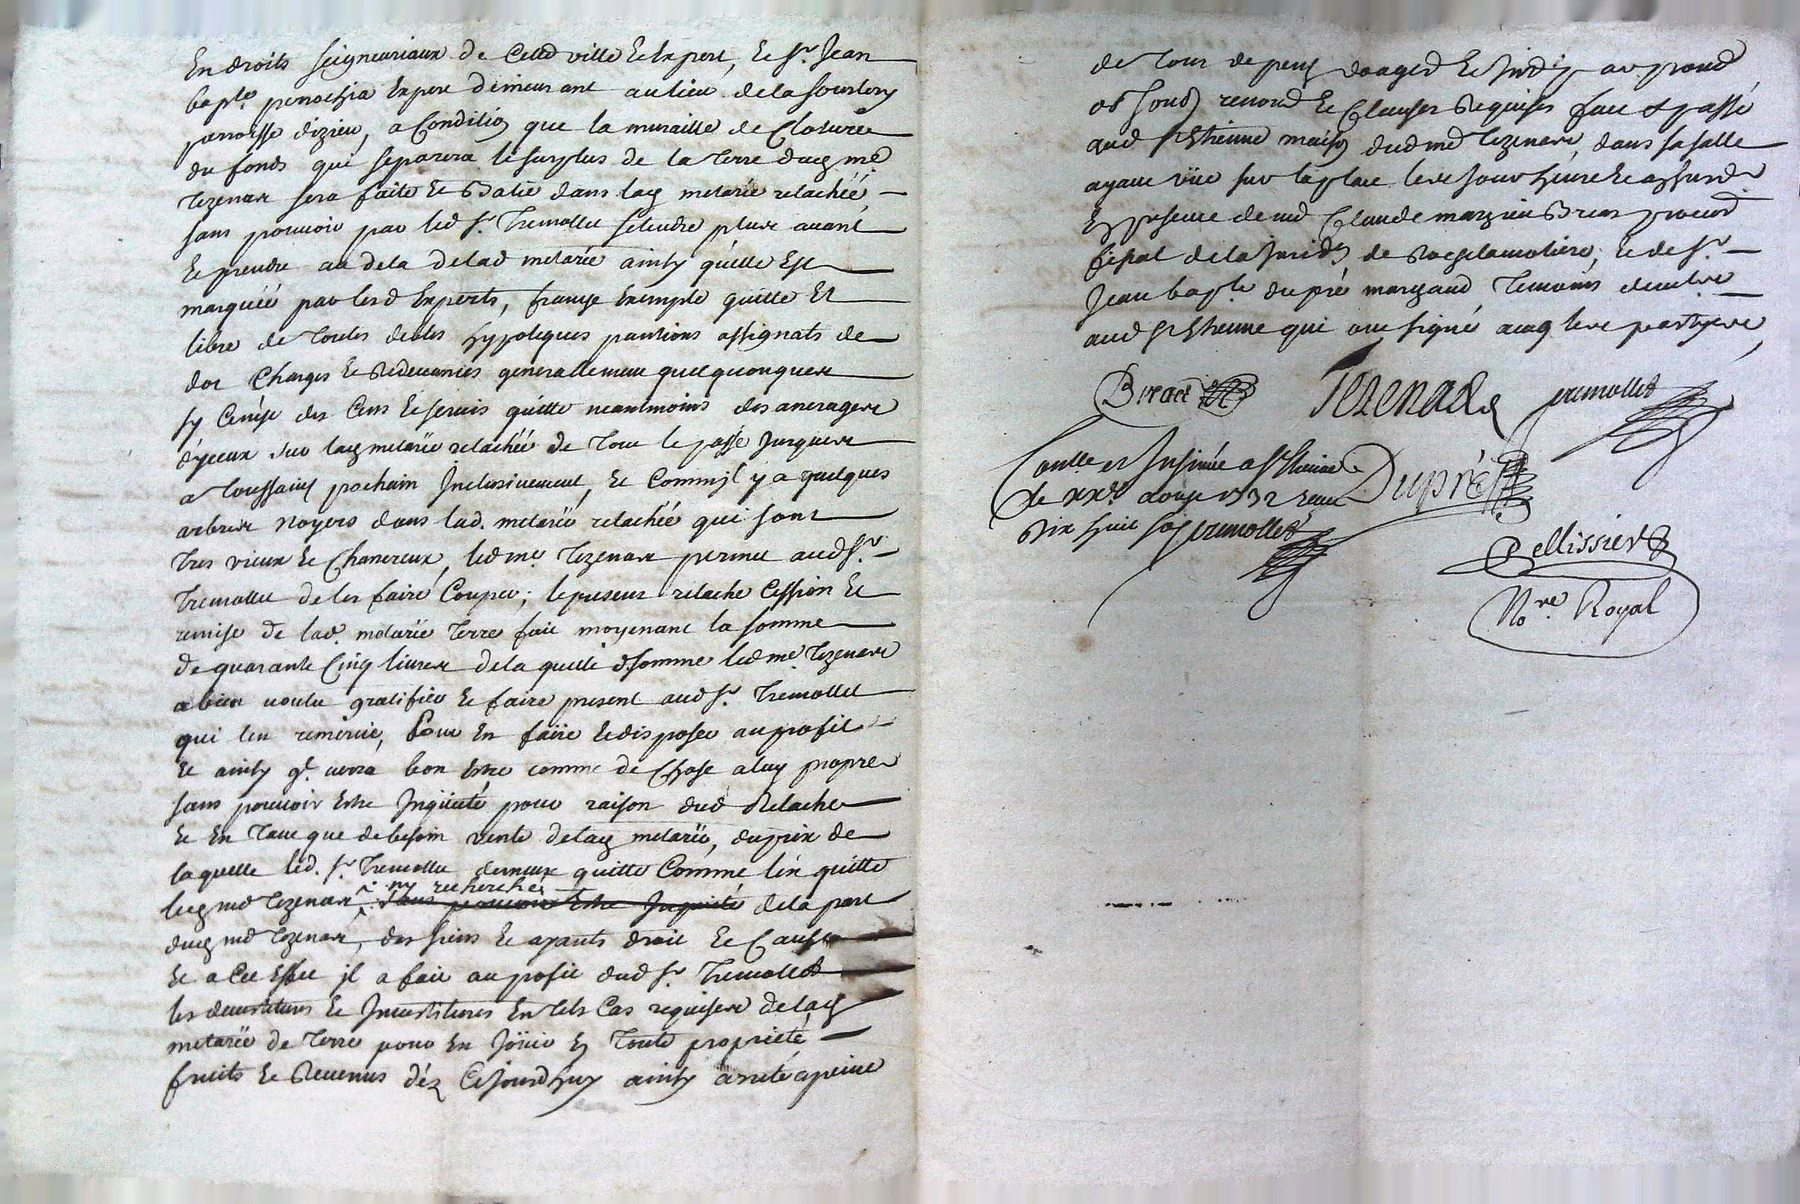 En droits seigneuriaux de Cetted ville & Expert, le Sr. Jean
bapte. penochia Exper demeurant au lieu de la fourlery
paroisse dizieu, a Condition que la muraille de Cloture
du fonds qui separera le surplus de la Terre ducq me
Tezenas sera faite & Batie dans lacq metarée relachéé,
sans pouvoir par led Sr. Tremollet setendre plus avant
& prendre au dela de lad metarée ainsy quelle Est
marquéé par lesd Experts, franche Exempte quitte &
libre de Toutes debtes hypoteques pantions assignats de
dot Charges & Redevances generallement quelqonques
sy Cen'est des Cens & servis quitte neantmoins des arerages
d'yceux sur lacq metarée relachéé de Tout le passé Jusques
a Toussaint prochain Inclusivement, & Comme jl y a quelques
arbres Noyers dans lad. metarée relachéé qui sont
Tres vieux & Chancreux, led me. Tezenas permet aud Sr.
Tremollet de les faire Couper; le present relache Cession &
remise de lad metarée Terre fait moyenant la somme
de quarante Cinq livres de la quelle somme led me. Tezenas
a bien voulu gratifier & faire present aud Sr. Tremollet
qui len remercie, Pour En faire & disposer au profit
& ainsy ql. verra bon Estre comme de Chose a luy propre
sans pouvoir Estre Inquieté pour raison dud Relache
& En Tant que de besoin vente de lacq metarée, du prix de
laquelle led. Sr. Tremollet demeure quitte Comme l'en quitte
lecq me Tezenas ny recherché sans pouvoir Estre Inquieté de la part
ducq me Tezenas, des siens & ayants droit & Cause
& a Cet Effet jl a fait au profit dud Sr. Tremollet
les devestitures & Investitures En tels Cas requises de lacq
metarée de Terre pour En Jouir En Toute propriété
fruits & Revenus déz Cejourdhuy ainsy arreté a peine
de Tous depens domages & Intherests
renond & Clauses Requises fait & passé
aud St Etienne maison dud me Tezenas, dans sa salle
ayant vüe sur la place les jour heure &
En presence de me Claude
fiscal de la Juridon de Rochelamoliere, & de Sr.
Jean bapte. dupré marchand Temoins demeurants
aud St Etienne qui ont signé avecq les partyes,
Tezenas tremollet
Conllé et Insinué a St Etienne
le aoust 1732 Receu
Dix huit sols tremollet
Dupré
Pellissier
Nore Royal